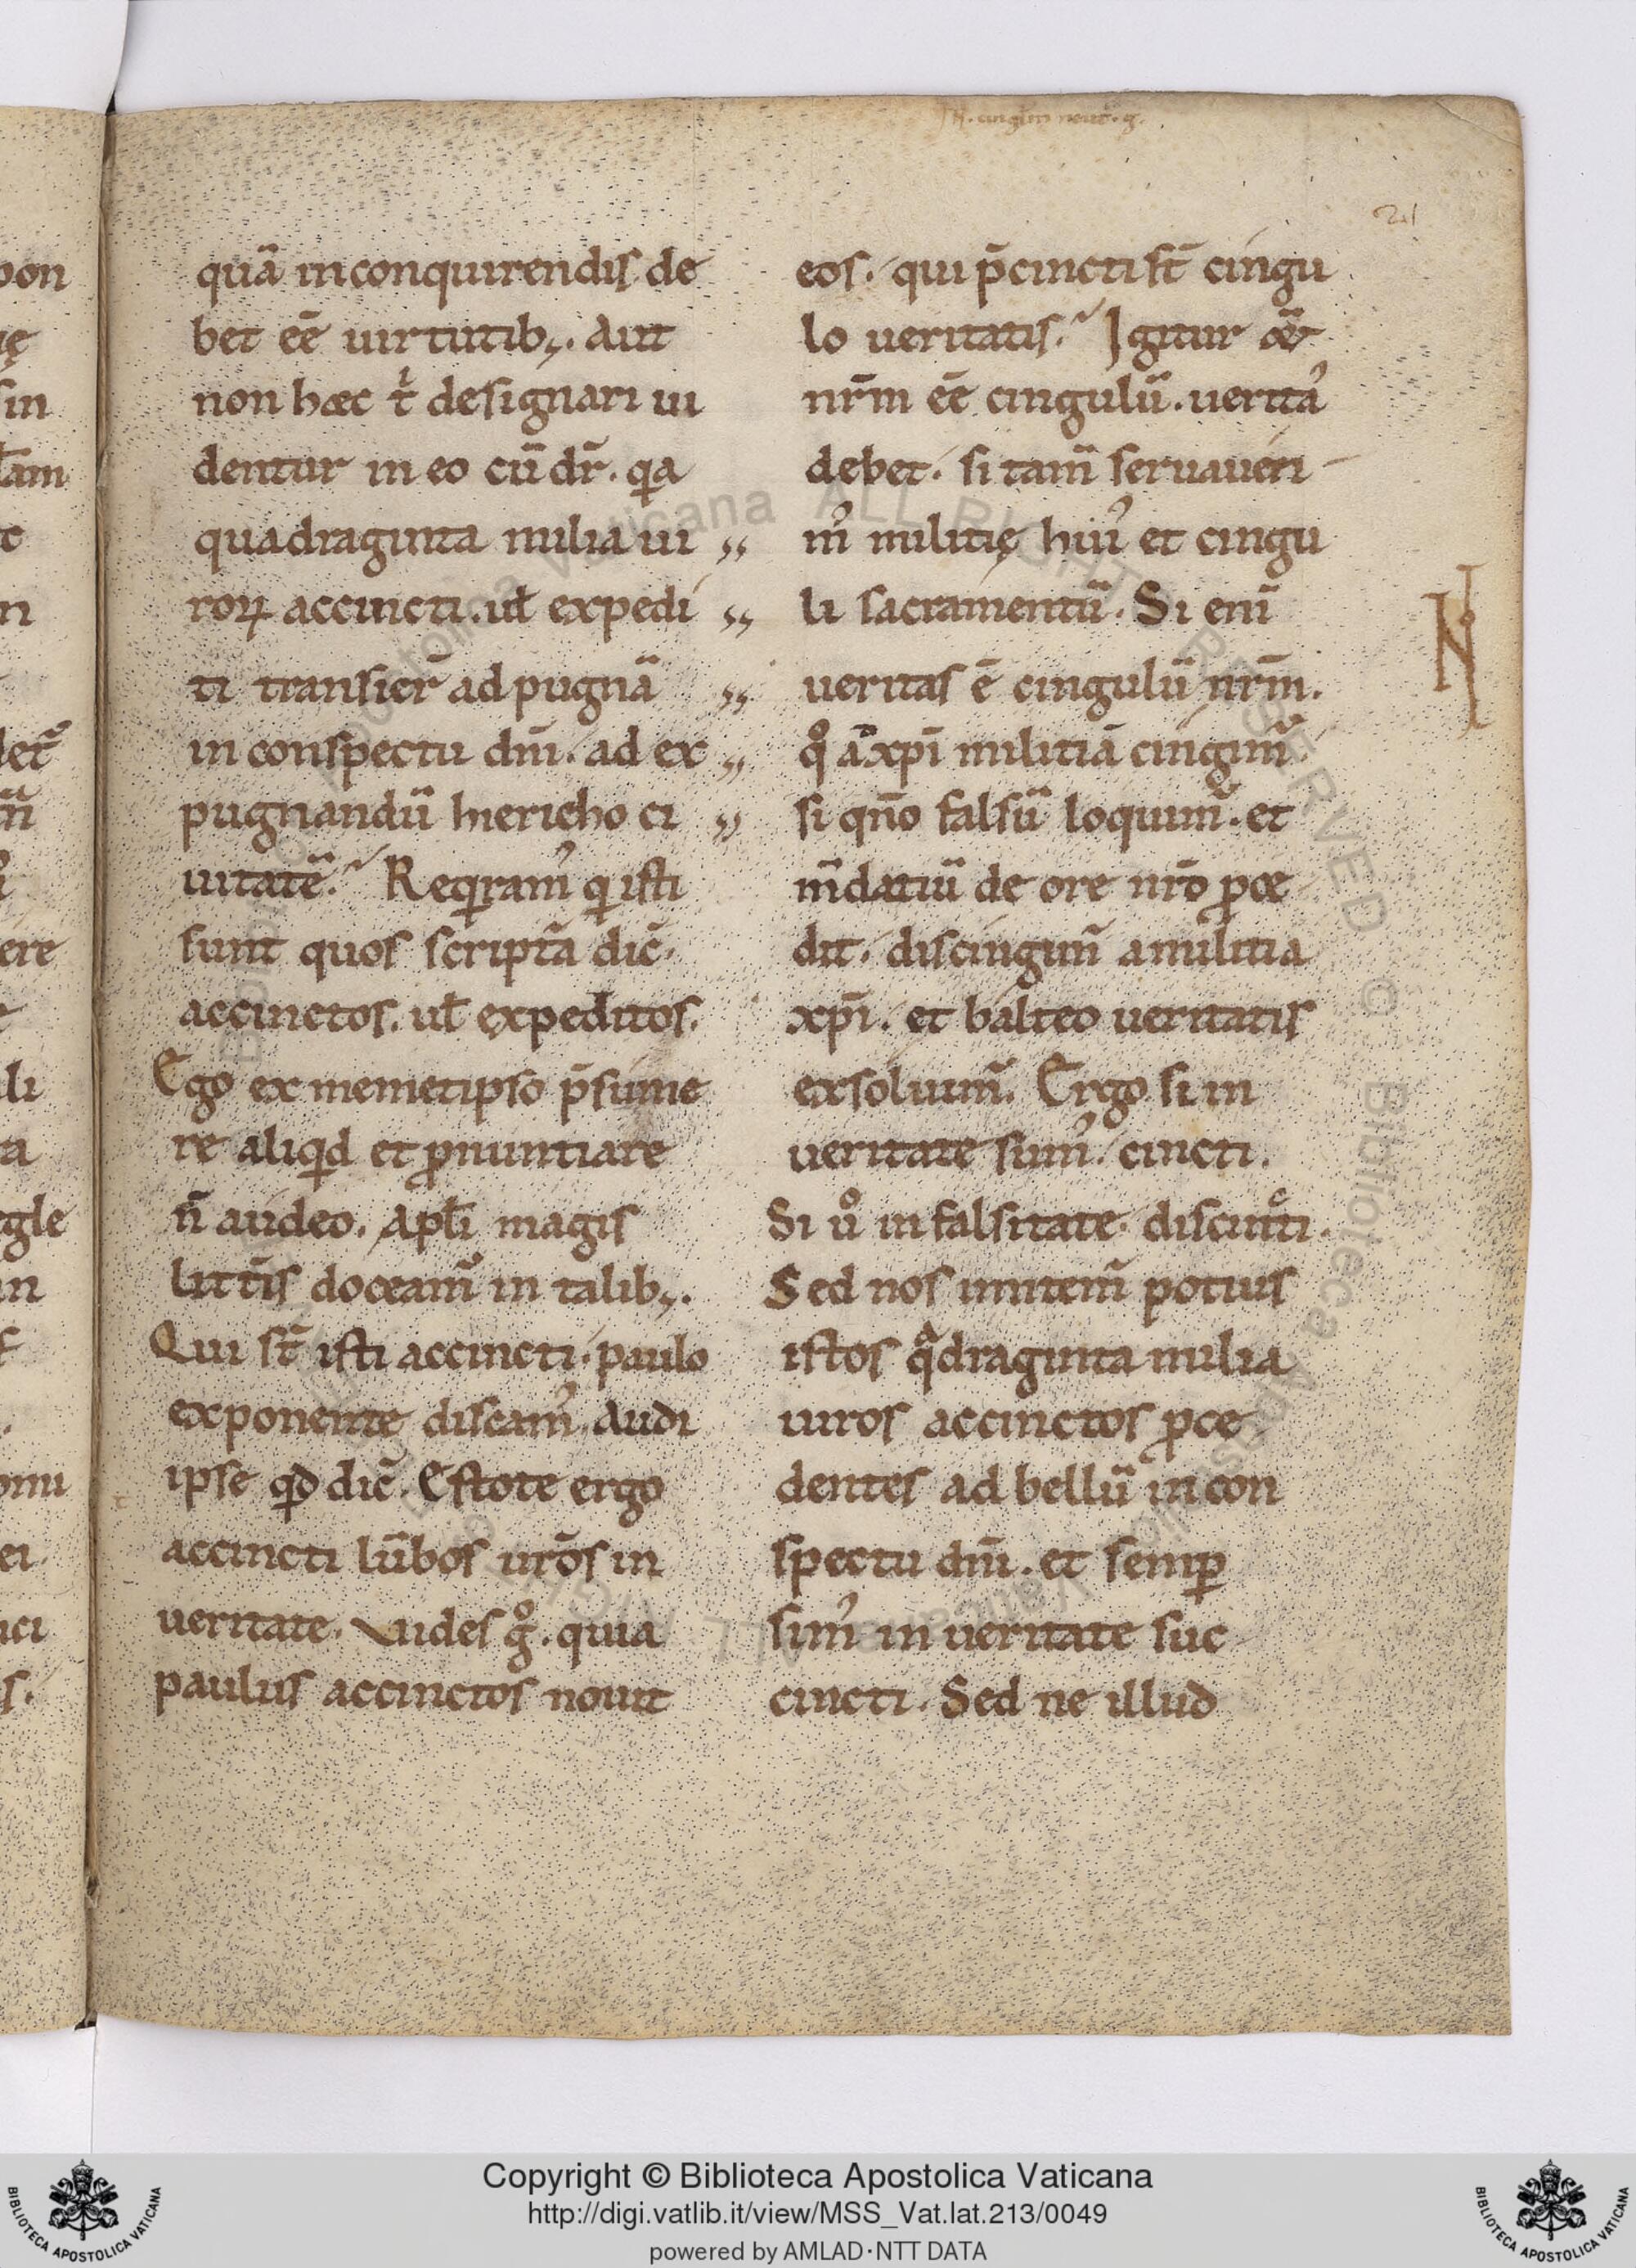 N. cingl'm neut'. g.
21
quā in conquirendis de
bet eē uirtutib;. Aut
non hæc t̄ designari ui
dentur in eo cū dr̄. qa
quadraginta milia ui
roꝝ accincti. ul̄ expedi
ti transier̄ ad pugnā
in conspectu dn̄i. ad ex
pugnandū hiericho ci
uitatē. Reqramꝰ q isti
sunt quos scriptā dic̄.
accinctos. ul̄ expeditos.
Ego ex memetipso p̄sume
re aliqd et ꝓnuntiare
n̄ audeo. Apl̄i magis
litt̄is doceam̄ in talib;.
Qui st̄ isti accincti. paulo
exponente discamꝰ. Audi
ipse qd dic̄. Estote ergo
accincti lūbos ur̄os in
ueritate. Uides gͦ. quia
paulus accinctos nouit
eos. qui p̄cincti st̄ cingu
lo ueritatis. Igitur &
nr̄m eē cingulū. ueritaꝰ
debet. si tam̄ seruaueri
mꝰ militię huiꝰ et cingu
li sacramentū. Si eni̅
ueritas ē cingulū nr̄m.
qͦ ad xpī militiā cingim̄.
si qn̄o falsū loquim̄. et
m̄datiū de ore nr̄o ꝓce
dit. discingim̄ a militia
xpī. et balteo ueritatis
exsoluim̄. Ergo si in
ueritate sumꝰ. cincti.
Si uͦ in falsitate. discincti.
Sed nos imitem̄ potius
istos qᵃdraginta milia
uiros accinctos ꝓce
dentes ad bellū in con
spectu dn̄i. et semꝑ
simꝰ in ueritate suc
cincti. Sed ne illud
Copyright © Biblioteca Apostolica Vaticana
http://digi.vatlib.it/view/MSS_Vat.lat.213/0049
powered by AMLAD·NTT DATA
BIBLIOTECA APOSTOLICA VATICANA
BIBLIOTECA APOSTOLICA VATICANA